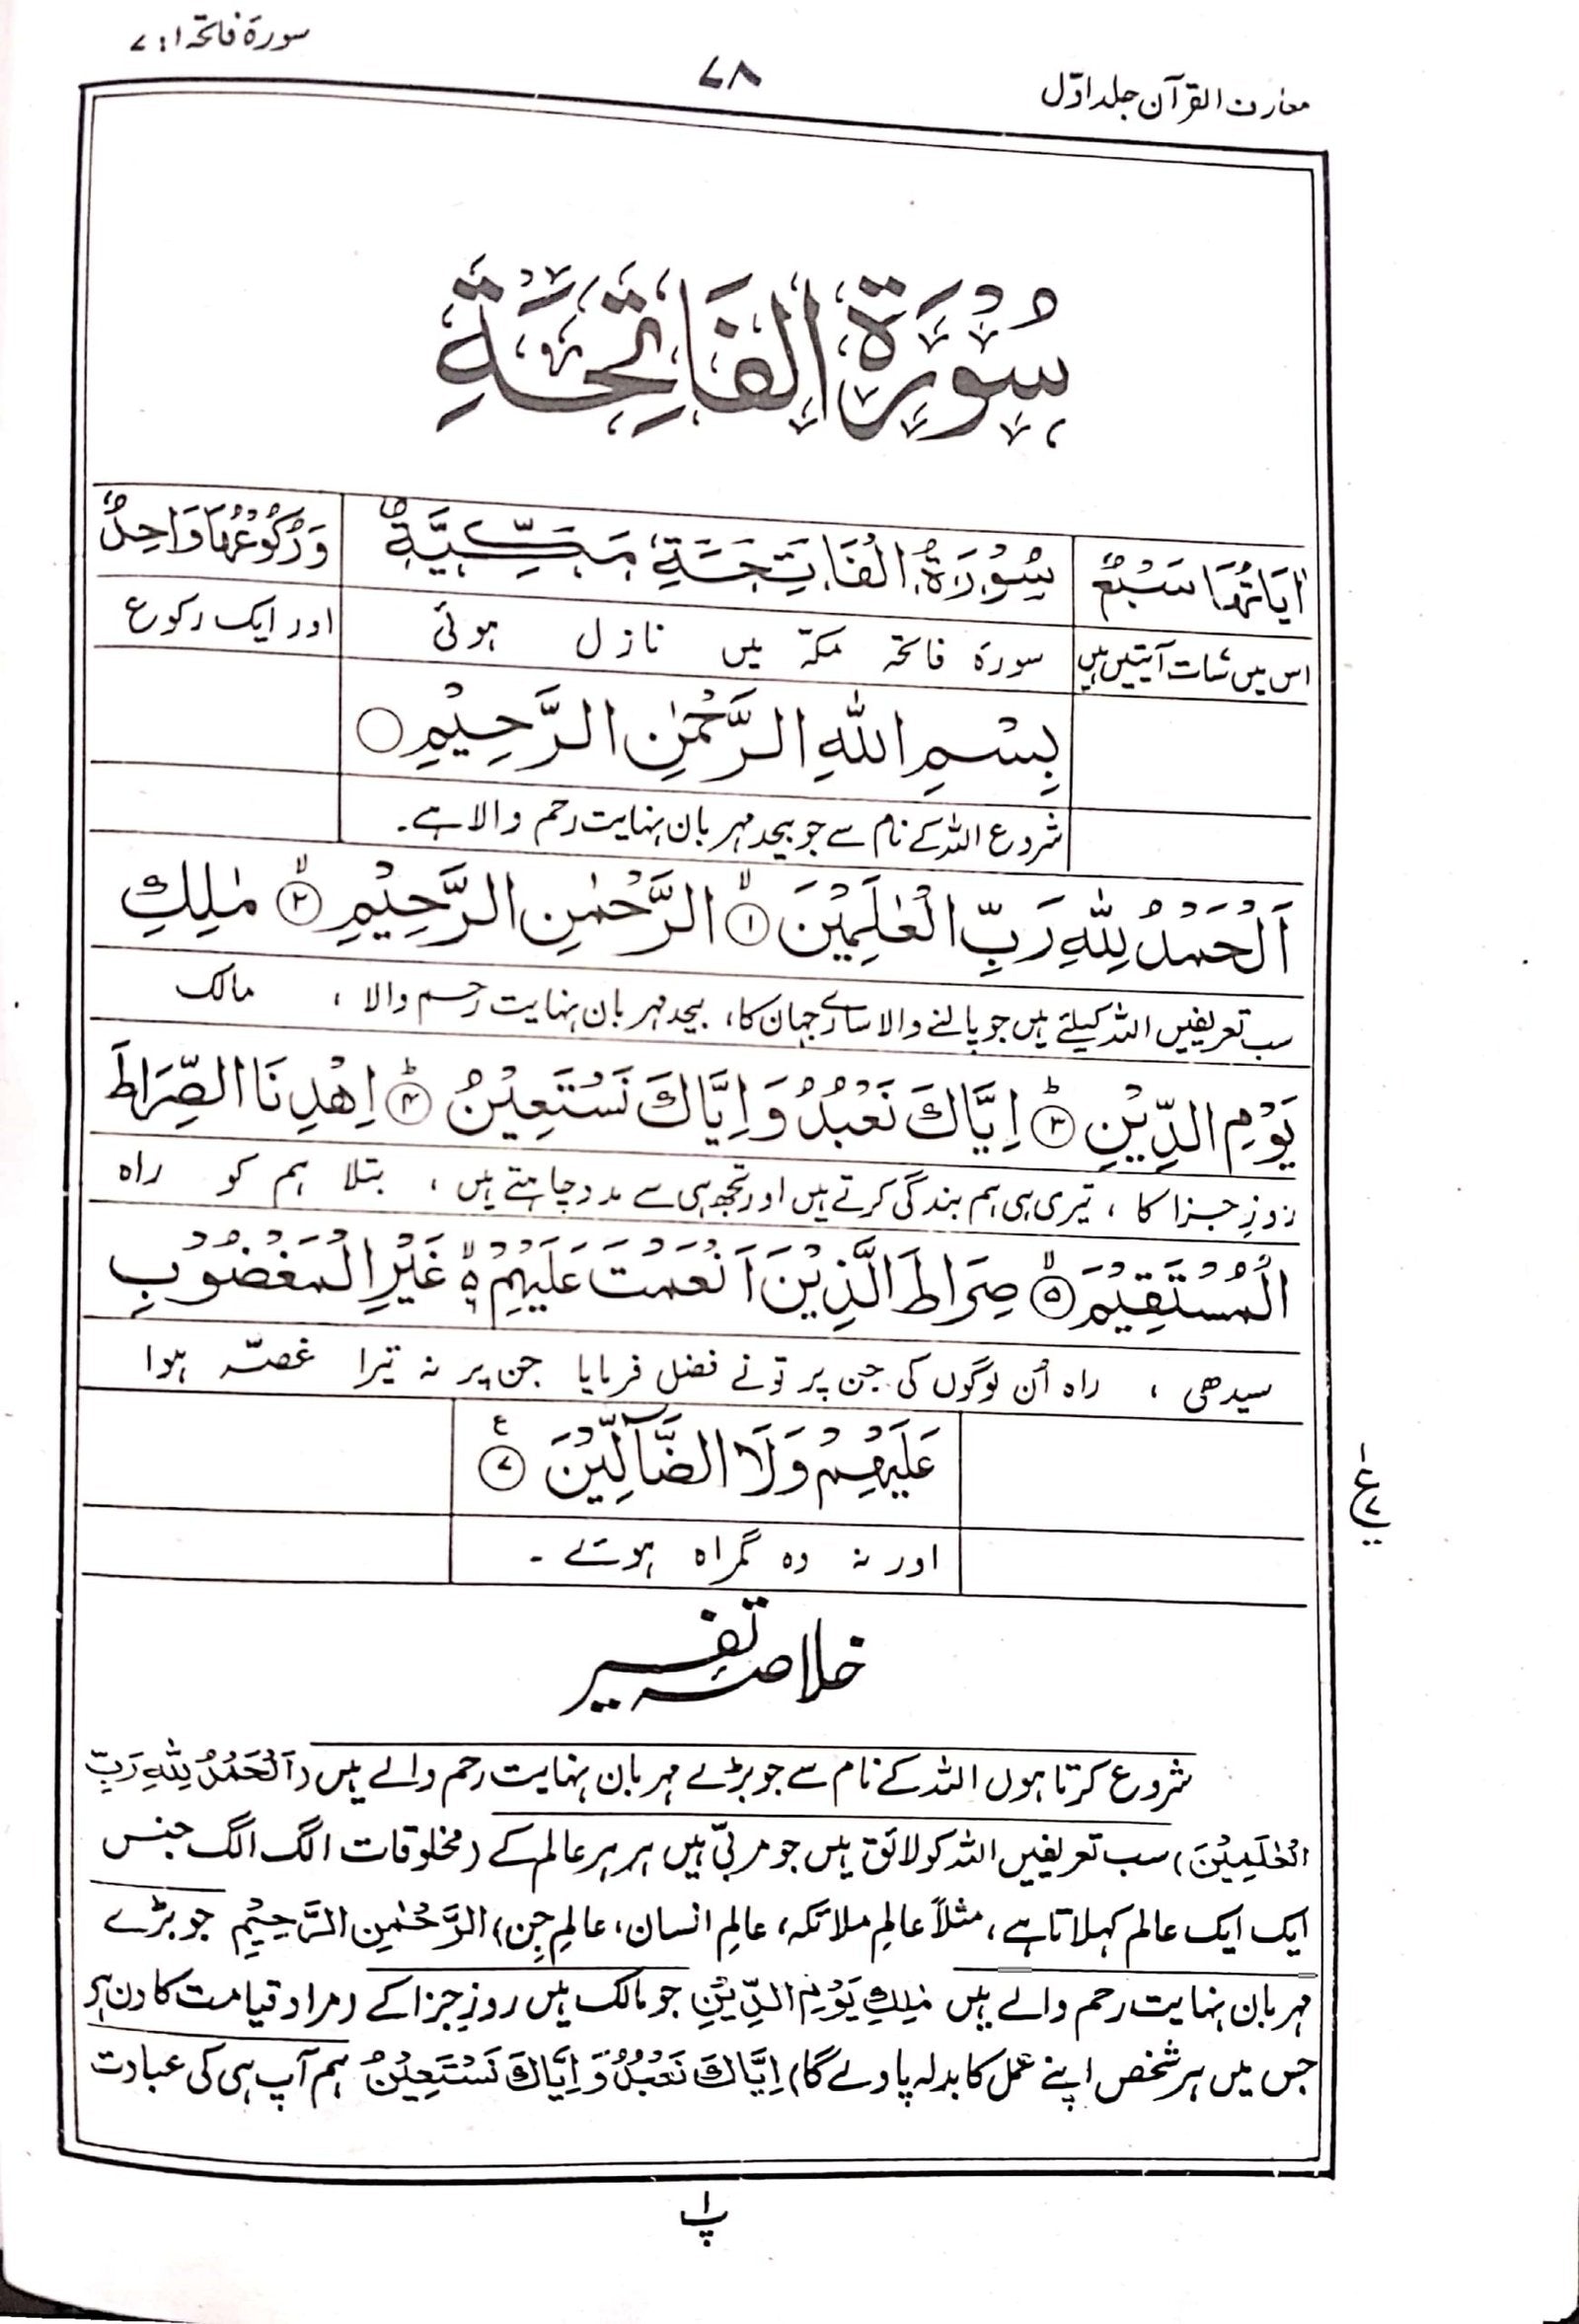 معارف القرآن جلد اوّل
۷۸
سورۃ فاتحہ ۱: ۷
سُوْرَةُ الْفَاتِحَةِ
اٰيَاتُهَا سَبْعٌ سُوْرَةُ الْفَاتِحَةِ مَكِّيَّةٌ وَرُكُوْعُهَا وَاحِدٌ
اس میں سات آیتیں ہیں سورۂ فاتحہ مکہ میں نازل ہوئی اور ایک رکوع
بِسْمِ اللّٰهِ الرَّحْمٰنِ الرَّحِيْمِ ○
شروع اللہ کے نام سے جو بیحد مہربان نہایت رحم والا ہے۔
اَلْحَمْدُ لِلّٰهِ رَبِّ الْعٰلَمِيْنَ ۱ الرَّحْمٰنِ الرَّحِيْمِ ۲ مٰلِكِ
سب تعریفیں اللہ کیلئے ہیں جو پالنے والا سارے جہان کا، بیحد مہربان نہایت رحم والا ، مالک
يَوْمِ الدِّيْنِ ۳ اِيَّاكَ نَعْبُدُ وَ اِيَّاكَ نَسْتَعِيْنُ ۴ اِهْدِنَا الصِّرَاطَ
روزِ جزا کا ، تیری ہی ہم بندگی کرتے ہیں اور تجھ ہی سے مدد چاہتے ہیں ، بتلا ہم کو راہ
الْمُسْتَقِيْمَ ۵ صِرَاطَ الَّذِيْنَ اَنْعَمْتَ عَلَيْهِمْ غَيْرِ الْمَغْضُوْبِ
سیدھی ، راہ اُن لوگوں کی جن پر تو نے فضل فرمایا جن پر نہ تیرا غصہ ہوا
عَلَيْهِمْ وَلَا الضَّآلِّيْنَ ۷
اور نہ وہ گمراہ ہوئے ۔
خلاصۂ تفسیر
شروع کرتا ہوں اللہ کے نام سے جو بڑے مہربان نہایت رحم والے ہیں (اَلْحَمْدُ لِلّٰهِ رَبِّ
الْعٰلَمِيْنَ) سب تعریفیں اللہ کو لائق ہیں جو مربی ہیں ہر ہر عالم کے (مخلوقات الگ الگ جنس
ایک ایک عالم کہلاتا ہے، مثلاً عالمِ ملائکہ، عالمِ انسان، عالمِ جن) الرَّحْمٰنِ الرَّحِيْمِ جو بڑے
مہربان نہایت رحم والے ہیں مٰلِكِ يَوْمِ الدِّيْنِ جو مالک ہیں روزِ جزا کے (مراد قیامت کا دن ہر
جس میں ہر شخص اپنے عمل کا بدلہ پاوے گا) اِيَّاكَ نَعْبُدُ وَ اِيَّاكَ نَسْتَعِيْنُ ہم آپ ہی کی عبادت
پ۱